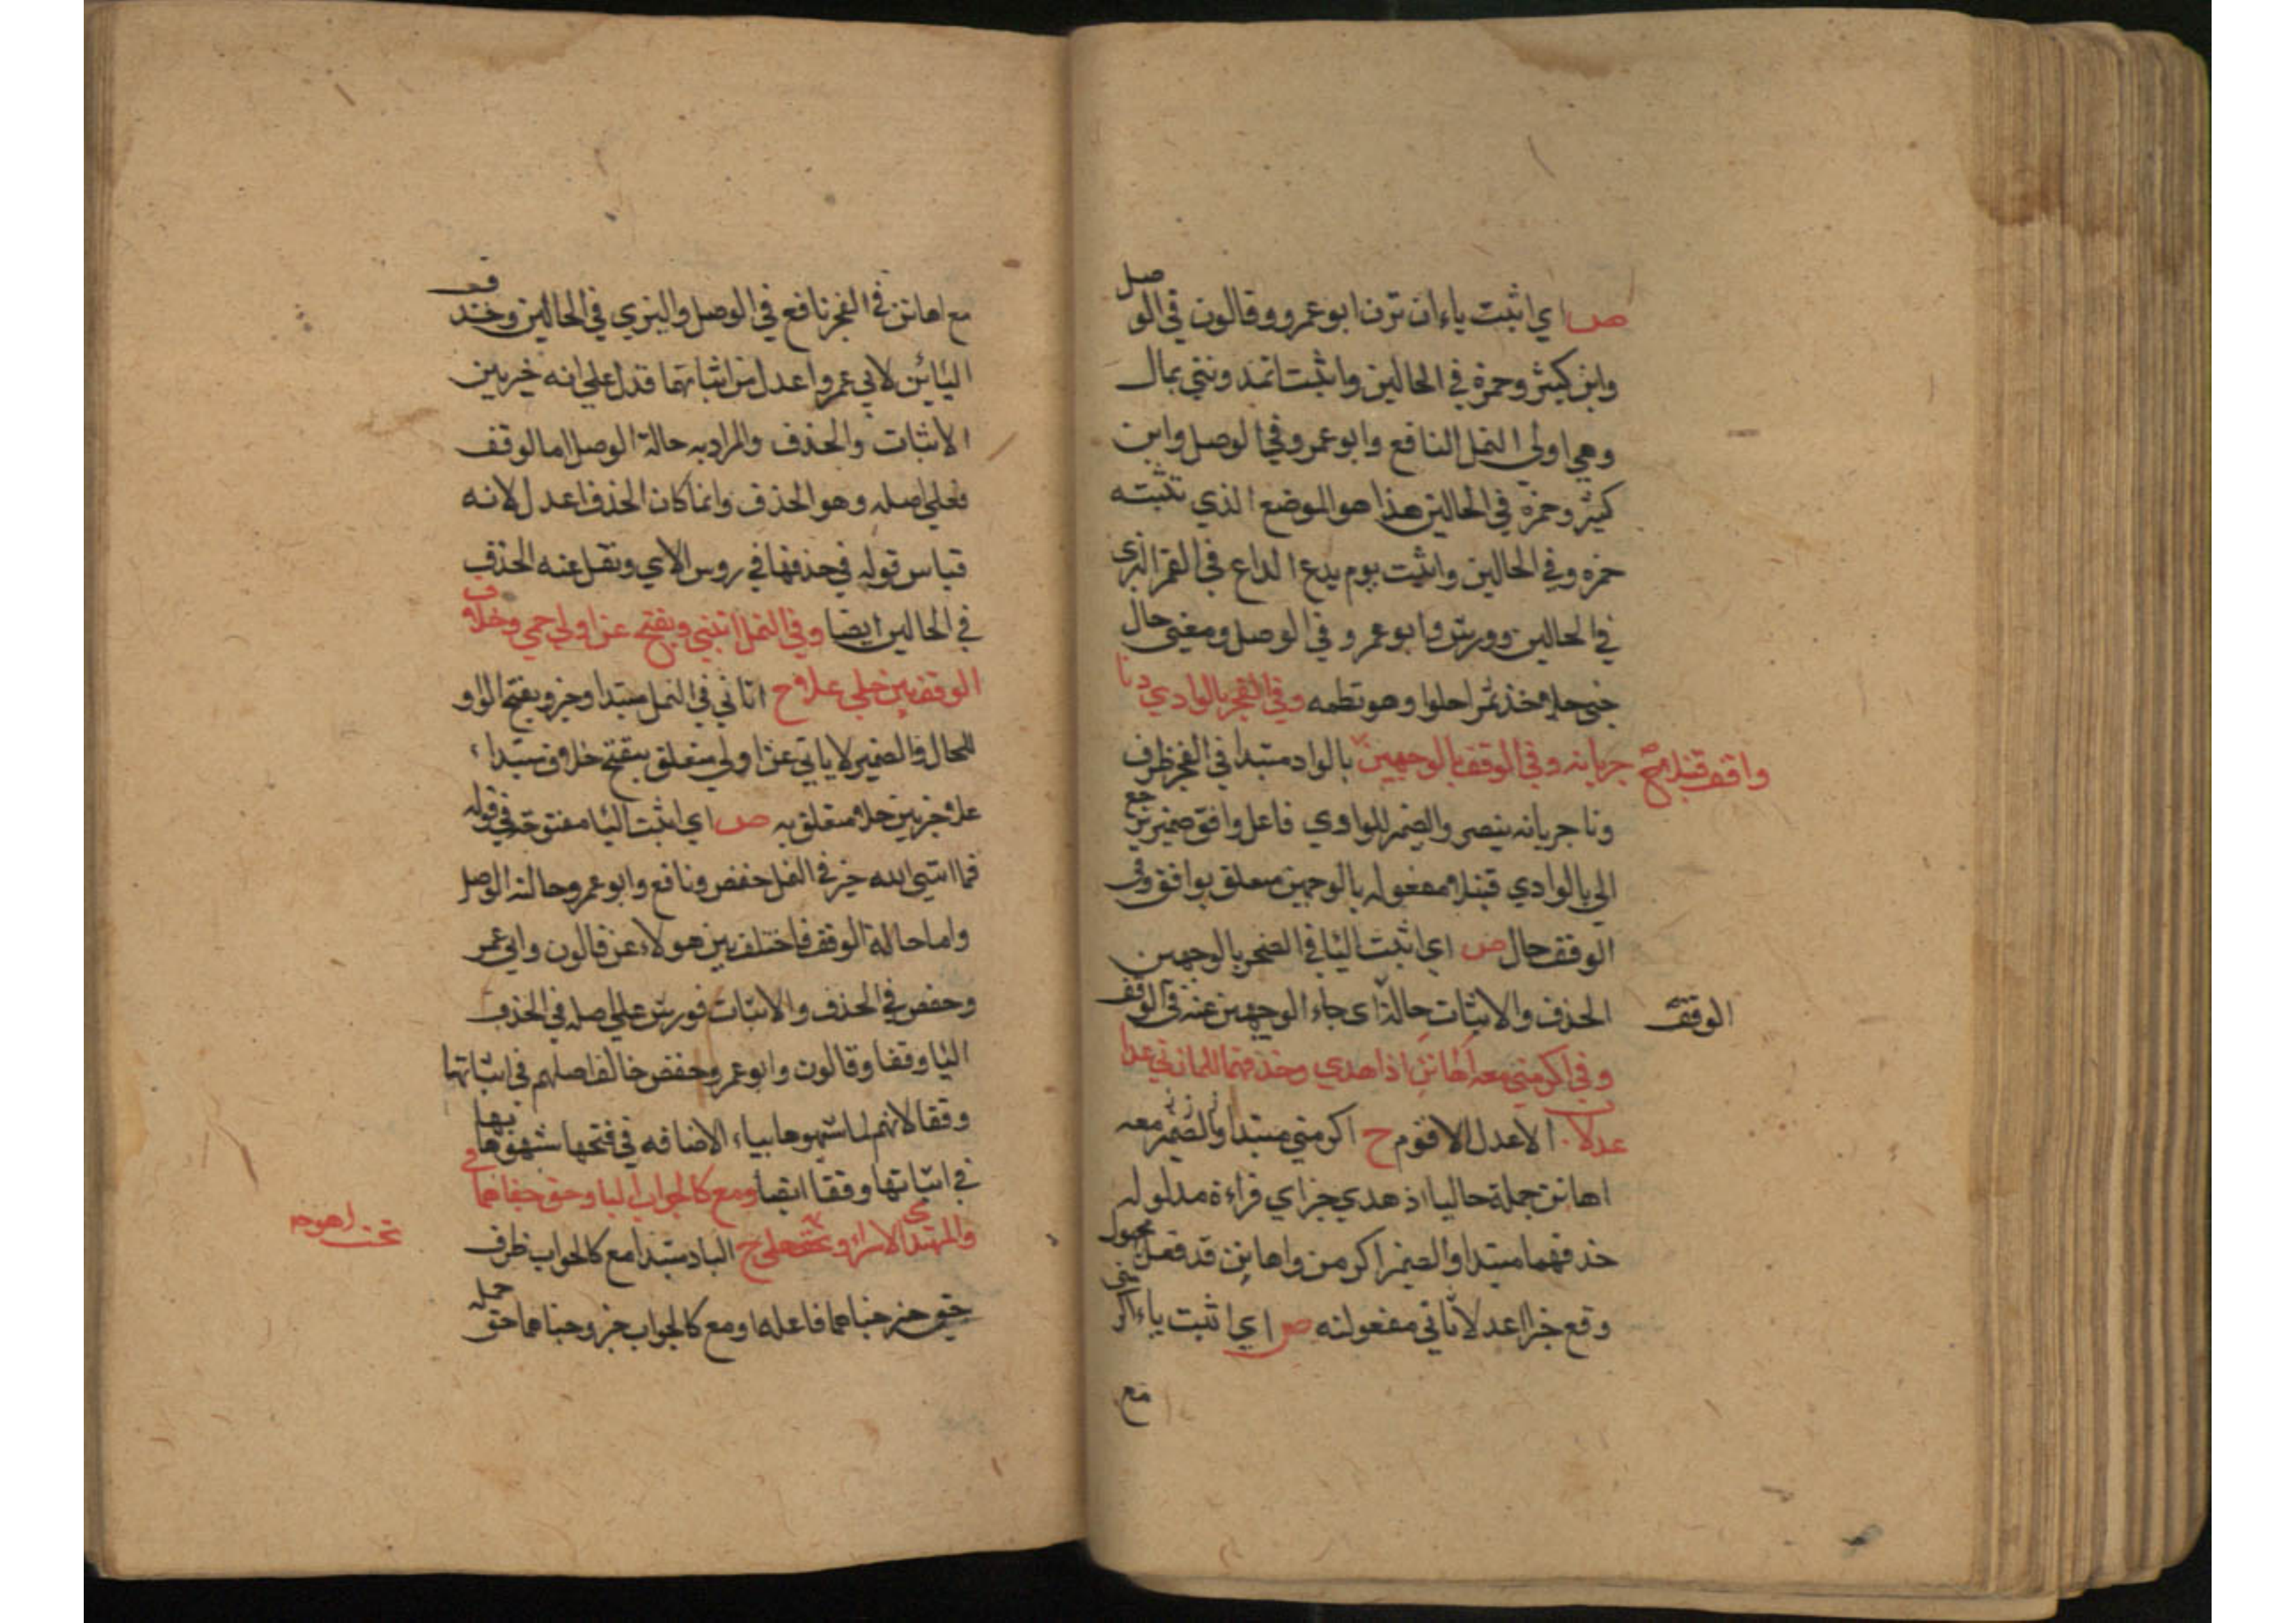 ص اي اثبت ياء ان ترن ابو عمرو وقالون في الوصل
وابن كثير وحمزة في الحالين واثبت اتمد ونني بمال
وهي اولي النمل النافع وابو عمرو وفي الوصل وابن
كثير وحمزه في الحالين هذا هو الموضع الذي تثبته
حمزه وفي الحالين واثبت يوم يدع الداع في القمر البزي
في الحالين وورش وابو عمرو في الوصل ومعني حال
جني حلا خذ ثمرا حلوا وهو نظمه وفي الفجر بالوادي دنا
جريانه وفي الوقف بالوجهين بالواد مبتدا في الفجر ظرف
وافق قنبلا ح
ونا جريانه ينصر والضمر للوادي فاعل وافق ضمير يرجع
الي بالوادي قنبلا مفعوله بالوجهين متعلق بوافق وفي
الوقف حال ص اي اثبت اليا في الفجر بالوجهين
الحذف والاثبات حالة اي جاء الوجهين عنه في الوقف
الوقف
وفي اكرمني معه اهانن اذ هدي وحذفهما للماني عدا
عدلا الاعدل الاقوم ح اكرمني مبتدا والضمر معه
اهانن جملة حاليا اذ هدي خبر اي قراءة مدلوله
حذفهما مبتدا والضمر اكرمن واهانن قد فعل مجهول
وقع خبرا اعدلا ثاني مفعولنه ص اي اثبت ياء اكرمني
مع
مع اهانن في الفجر نافع في الوصل والبزي في الحالين وحذف
اليائين لابي عمرو اعدل من اثباتهما فدل علي انه خير بين
الاثبات والحذف والمراد به حالة الوصل اما الوقف
فعلي اصله وهو الحذف وانما كان الحذف اعدل لانه
قياس قوله في حذفها في روس الاي ونقل عنه الحذف
في الحالين ايضا وفي النمل اتنني ويفتح عن اولي حمي وخلاف
الوقف بين حلي علا ح اتاني في النمل مبتدا وخبر ويفتح الواو
للحال والضمير لاياتي عن اولي متعلق بيفتح خلاف مبتداء
علا خبر بين حلا متعلق به ص اي اثبت اليا مفتوحة في قوله
فما اتني الله خير في النمل حفص ونافع وابو عمرو حالة الوصل
واما حالة الوقف فاختلف بين هولاء عن قالون وابي عمر
وحفص في الحذف والاثبات فورش علي اصله في الحذف
اليا وقفا وقالون وابو عمرو وحفص خالف اصلهم في اثباتها
وقفا لانهم لما شبهوها بياء الاضافه في فتحها شبهوها بها
في اثباتها وقفا ايضا ومع كالجواب اليا وحق جناهما
وفي المهتدي الاسرا وتحت حلي ح الباد مبتدا مع كالجواب ظرف
تحت اهوحه
حق خبر جناهما فاعله او مع كالجواب خبر وجناهما حق جمله